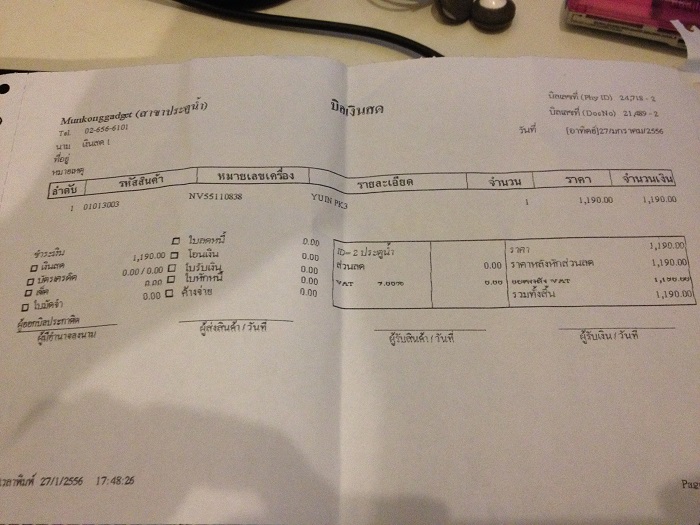 Munkonggadget (สาขาประตูน้ำ)
บิลเงินสด
บิลเลขที่ (Phy ID) 24,718 - 2
Tel. 02-656-6101
บิลเลขที่ (DocNo) 21,489 - 2
นาม เงินสด 1
วันที่ [อาทิตย์]27/มกราคม/2556
ที่อยู่
หมายเหตุ
ลำดับ รหัสสินค้า หมายเลขเครื่อง รายละเอียด จำนวน ราคา จำนวนเงิน
1 01013003 NV55110838 YUIN PK3 1 1,190.00 1,190.00
ชำระเงิน
เงินสด 1,190.00
บัตรเครดิต 0.00 / 0.00
เช็ค 0.00
ใบมัดจำ 0.00
ใบลดหนี้ 0.00
โอนเงิน 0.00
ใบรับเงิน 0.00
ใบหักหนี้ 0.00
ค้างจ่าย 0.00
ID= 2 ประตูน้ำ ราคา 1,190.00
ส่วนลด 0.00 ราคาหลังหักส่วนลด 1,190.00
VAT 7.00% 0.00 ยอดหลัง VAT 1,190.00
รวมทั้งสิ้น 1,190.00
ผู้ออกบิลประกาศิต
ผู้มีอำนาจลงนาม
ผู้ส่งสินค้า / วันที่
ผู้รับสินค้า / วันที่
ผู้รับเงิน / วันที่
เวลาพิมพ์ 27/1/2556 17:48:26